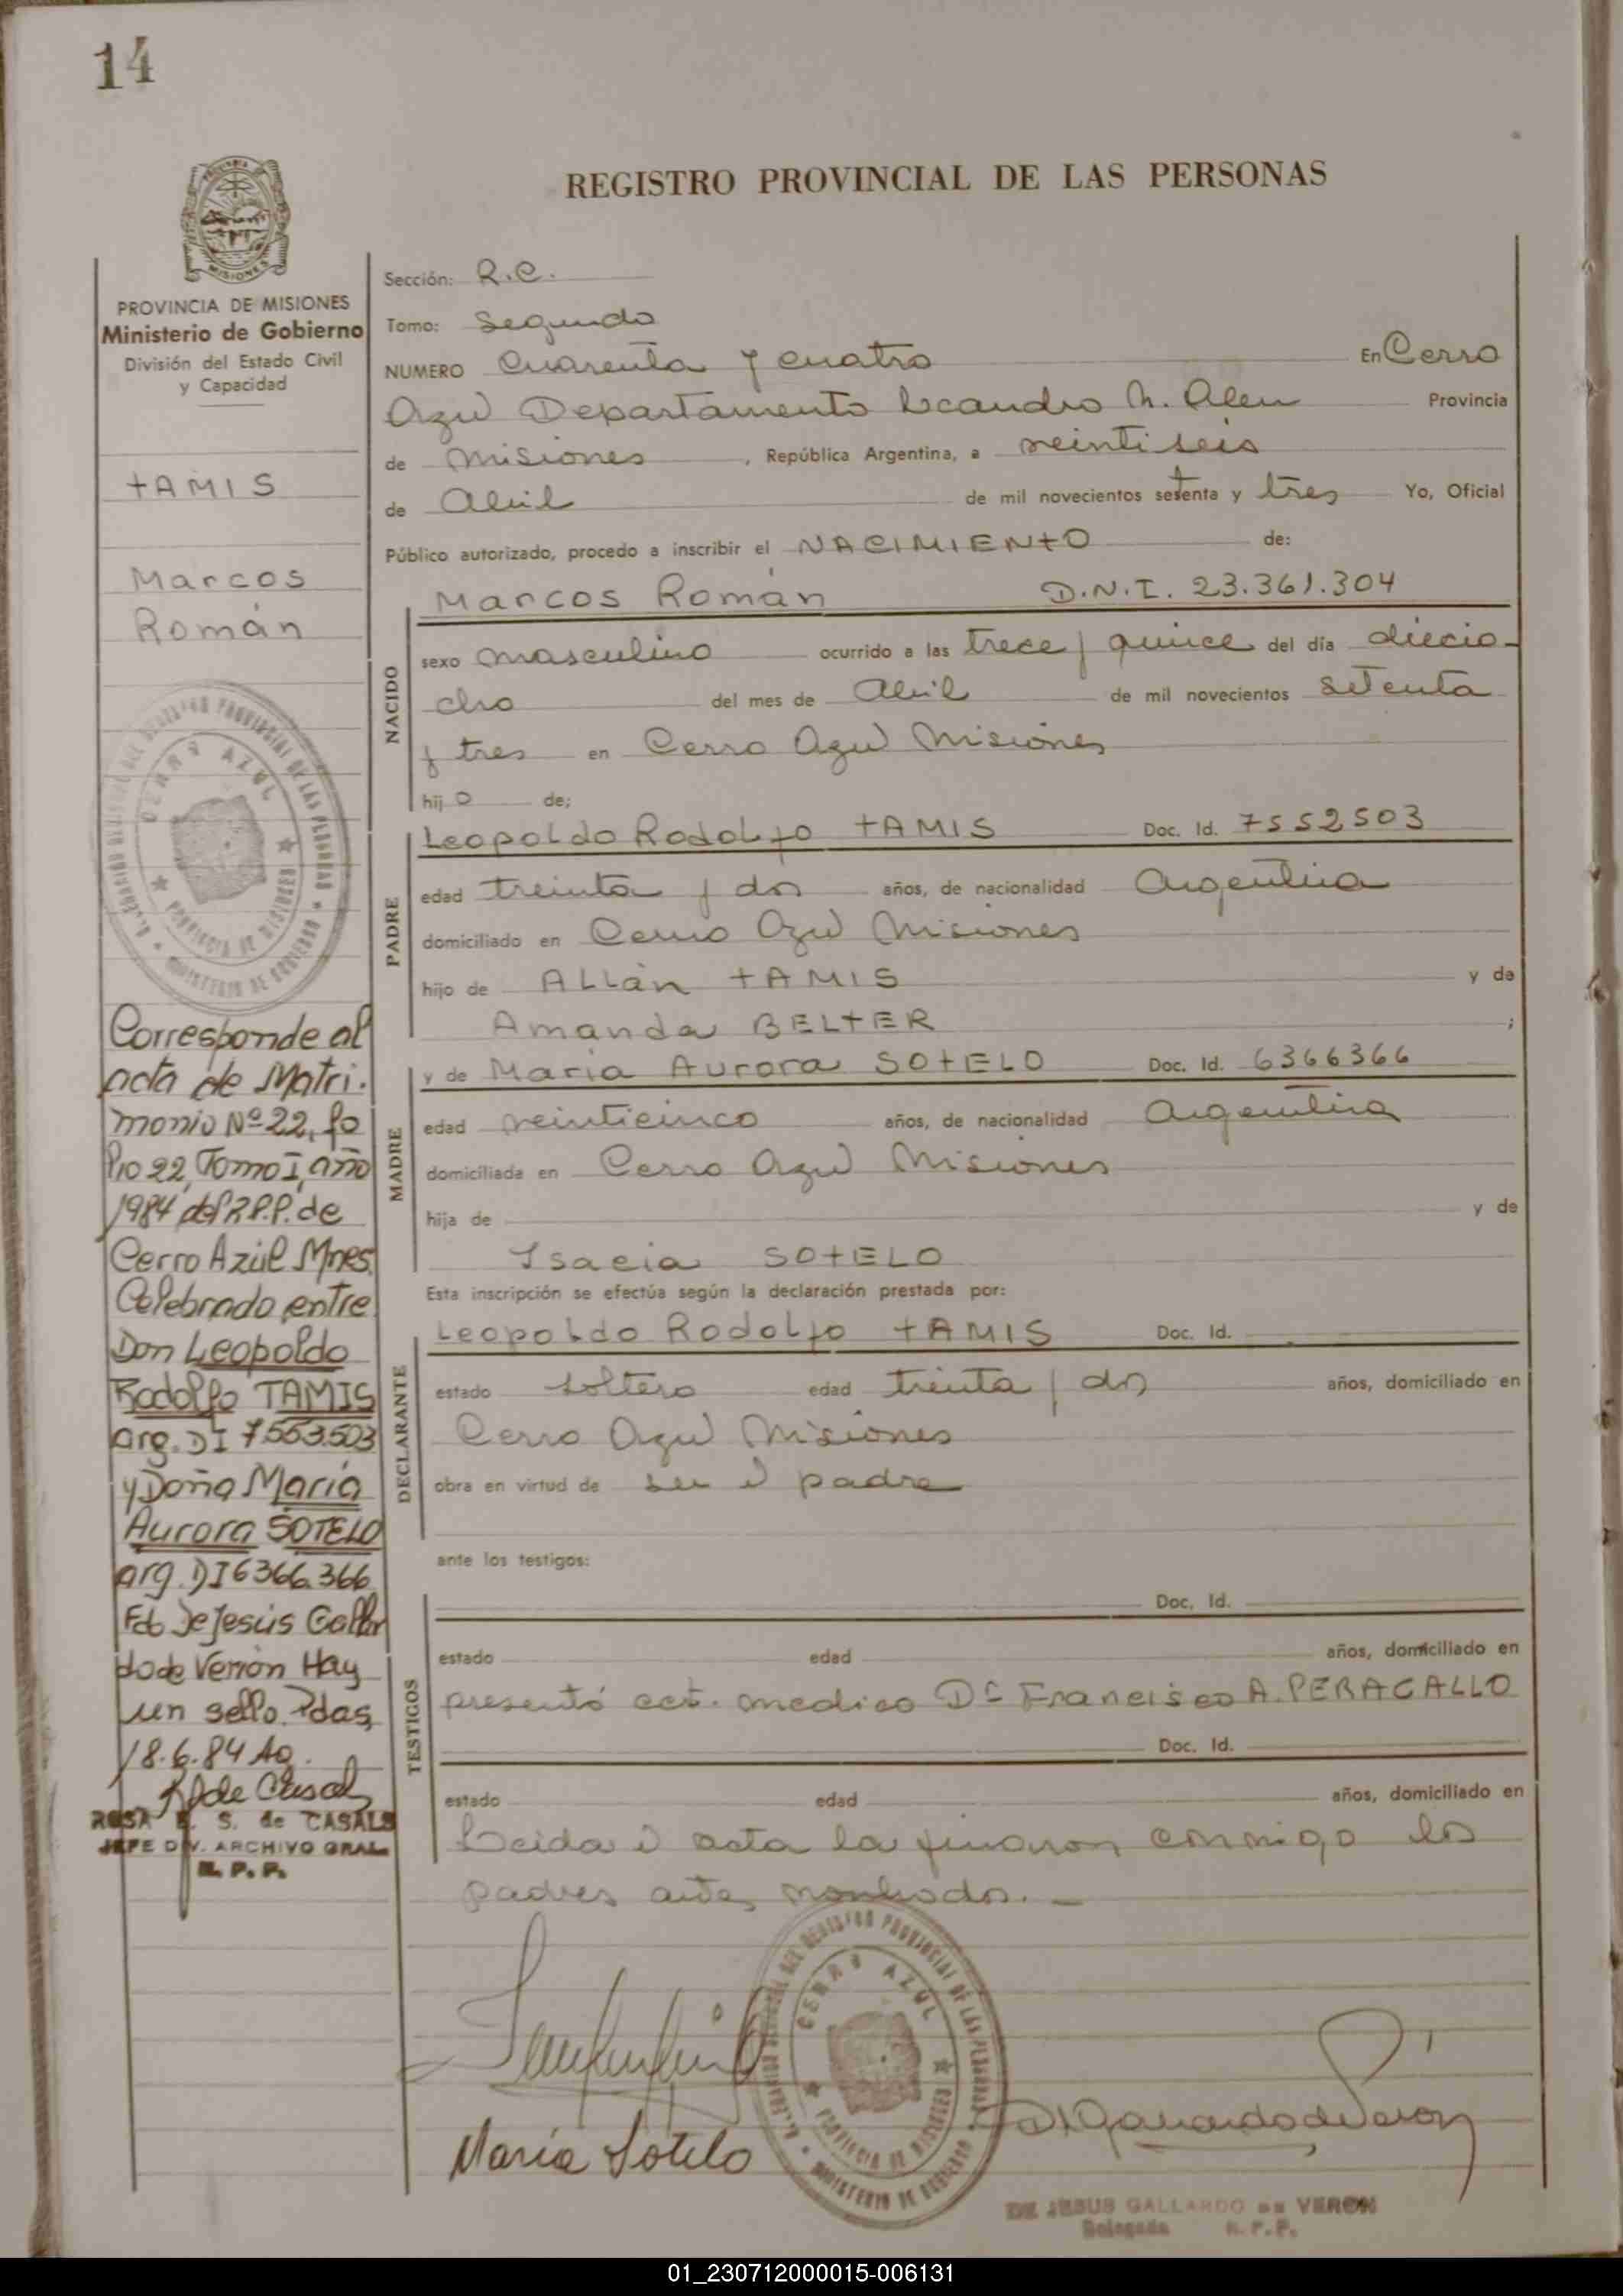 14
REGISTRO PROVINCIAL DE LAS PERSONAS
MISIONES
PROVINCIA DE MISIONES
Ministerio de Gobierno
División del Estado Civil
y Capacidad
TAMIS
Marcos
Román
Corresponde al
acta de Matri-
monio Nº 22, fo
lio 22, Tomo I, año
1984 del R.P.P. de
Cerro Azúl Mnes.
Celebrado entre
Don Leopoldo
Rodolfo TAMIS
arg. DI 7.553.503
y Doña María
Aurora SOTELO
arg. DI 6366.366
Fdo De Jesús Gallar
do de Verón Hay
un sello. Pdas,
18.6.84
ROSA E. S. de CASALS
JEFE DIV. ARCHIVO GRAL.
R. P. P.
Sección: R.C.
Tomo: Segundo
NUMERO Cuarenta y cuatro En Cerro
Azul Departamento Leandro N. Alem Provincia
de Misiones, República Argentina, a veintiseis
de Abril de mil novecientos setenta y tres Yo, Oficial
Público autorizado, procedo a inscribir el NACIMIENTO de:
Marcos Román D.N.I. 23.361.304
NACIDO
sexo masculino ocurrido a las trece y quince del día diecio-
cho del mes de Abril de mil novecientos setenta
y tres en Cerro Azul Misiones
hijo de;
Leopoldo Rodolfo TAMIS Doc. Id. 7552503
PADRE
edad treinta y dos años, de nacionalidad Argentina
domiciliado en Cerro Azul Misiones
hijo de Allán TAMIS y da
Amanda BELTER ;
y de Maria Aurora SOTELO Doc. Id. 6366366
MADRE
edad veinticinco años, de nacionalidad Argentina
domiciliada en Cerro Azul Misiones
hija de y de
Isacia SOTELO
Esta inscripción se efectúa según la declaración prestada por:
Leopoldo Rodolfo TAMIS Doc. Id.
DECLARANTE
estado soltero edad treinta y dos años, domiciliado en
Cerro Azul Misiones
obra en virtud de ser el padre
ante los testigos:
Doc. Id.
TESTIGOS
estado edad años, domiciliado en
presentó cert. medico Dr Francisco A. PERAGALLO
Doc. Id.
estado edad años, domiciliado en
Leida el acta la firmaron conmigo los
padres antes nombrados.-
CERRO AZUL
PROVINCIA DE MISIONES
MINISTERIO DE GOBIERNO
María Sotelo
DE JESUS GALLARDO DE VERON
Delegada R.P.P.
01_230712000015-006131